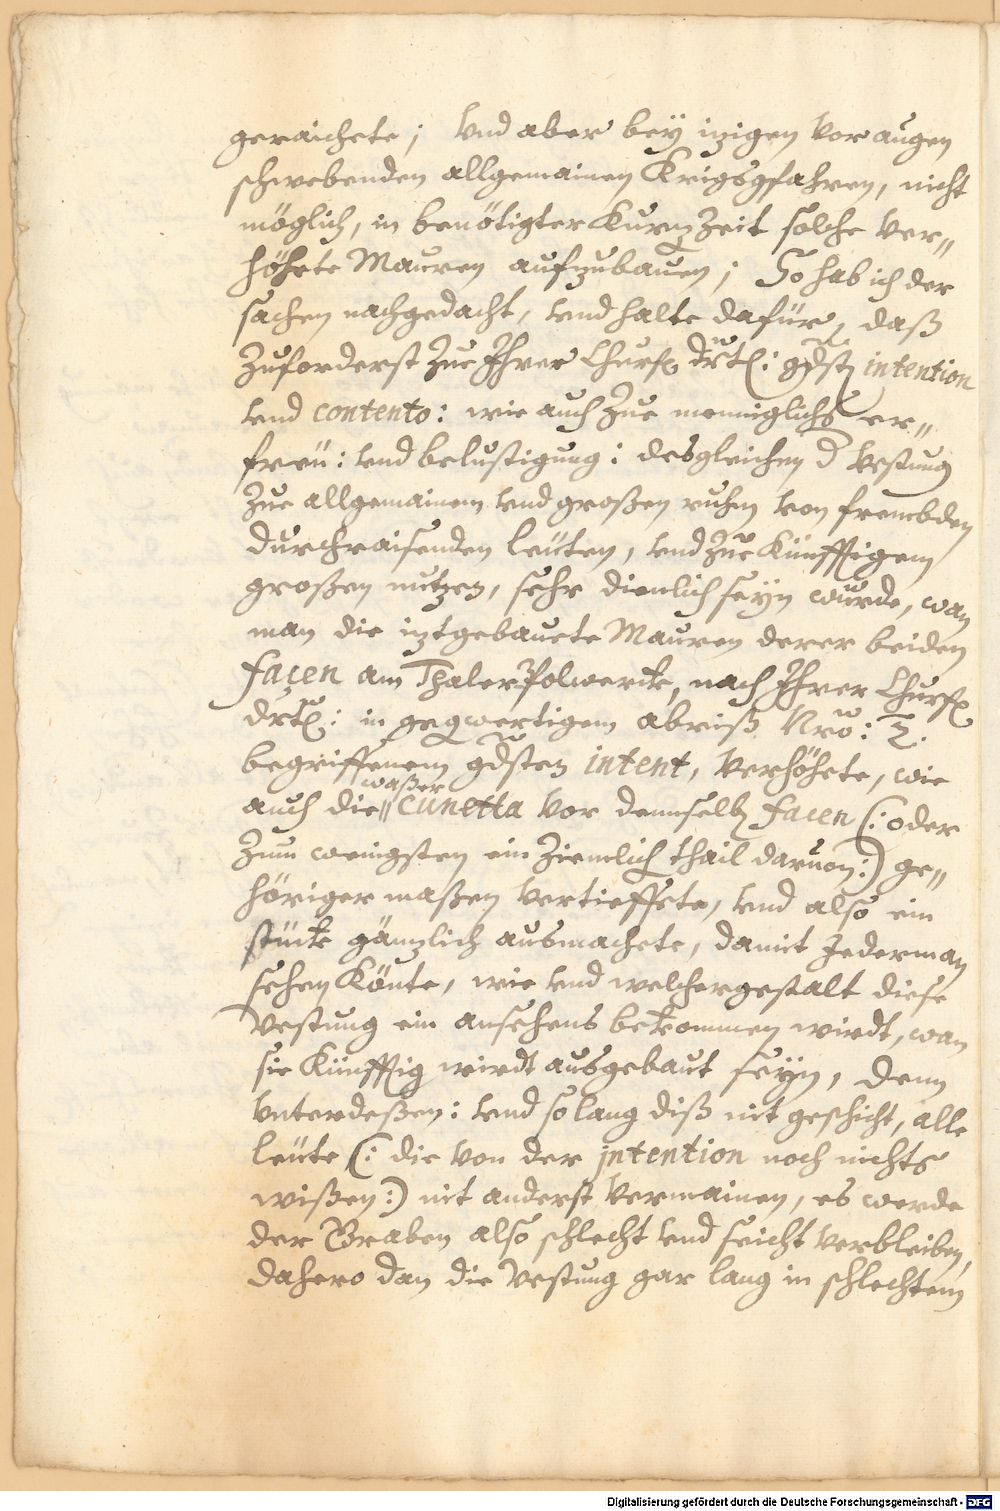 geraichete; Vnd aber bey izigen vor augen
schwebenden allgemainen Krigsgfahren, nicht
möglich, in benötigter Kurzen Zeit solche Ver„
höhete Mauren aufzubauen; So hab ich der
sachen nachgedacht, vnd halte dafür, daß
Zuforderst Zue Ihrer Churf. drtl: gdst intention
vnd contento: wie auch Zue menniglichs er„
freü: vnd belustigung: desgleichen d Vestung
Zue allgemainem vnd großen ruhm von frembden
durchraisenden leüten, vnd Zue Künfftigem
großen nutzen, sehr dienlich seyn würde, wan
man die iztgebauete Mauren derer beiden
facen am Thaler Polwerck, nach Ihrer Churf.
drtl: in gegwertigem abriß Nro: 2.
begriffenem gdsten intent, Verhöhete, wie
auch die„ waßer cunetta vor dennselben facen (: oder
Zum wenigsten ein Ziemlich thail daruon:) ge„
höriger maßen vertieffete, vnd also ein
stück gänzlich ausmachete, damit Jederman
sehen Könte, wie vnd welchergestalt diese
Vestung ein ansehens bekommen wirdt, wan
sie Künfftig wirdt ausgebaut seyn, denn
Vnterdeßen: vnd so lang diß nit geschicht, alle
leüte (: die von der jntention noch nichts
wißen:) nit anderst vermainen, es werde
der Graben also schlecht vnd seicht verbleiben,
dahero dan die Vestung gar lang in schlechtem